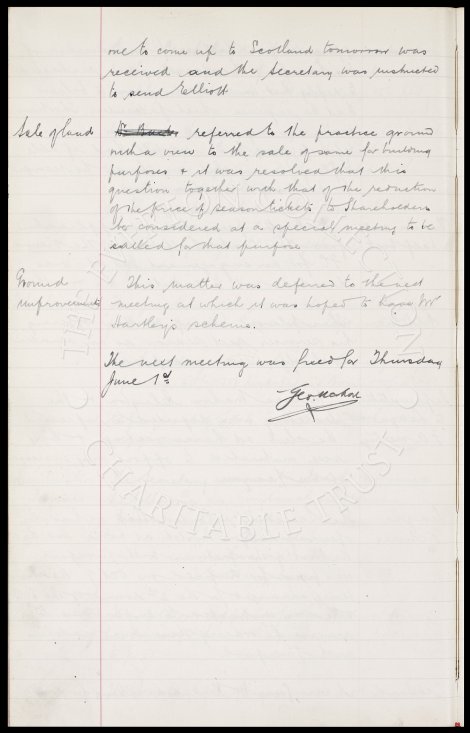 one to come up to Scotland tomorrow was
received and the Secretary was instructed
to send Elliott
Sale of land
Dr Baxter referred to the practice ground
with a view to the sale of same for building
purposes & it was resolved that this
question together with that of the reduction
of the price of season tickets to Shareholders
be considered at a special meeting to be
called for that purpose
Ground
improvements
This matter was deferred to the next
meeting at which it was hoped to have Mr
Hartley's scheme.
The next meeting was fixed for Thursday
June 1st
Geo. Mahon
THE EVERTON COLLECTION
CHARITABLE TRUST